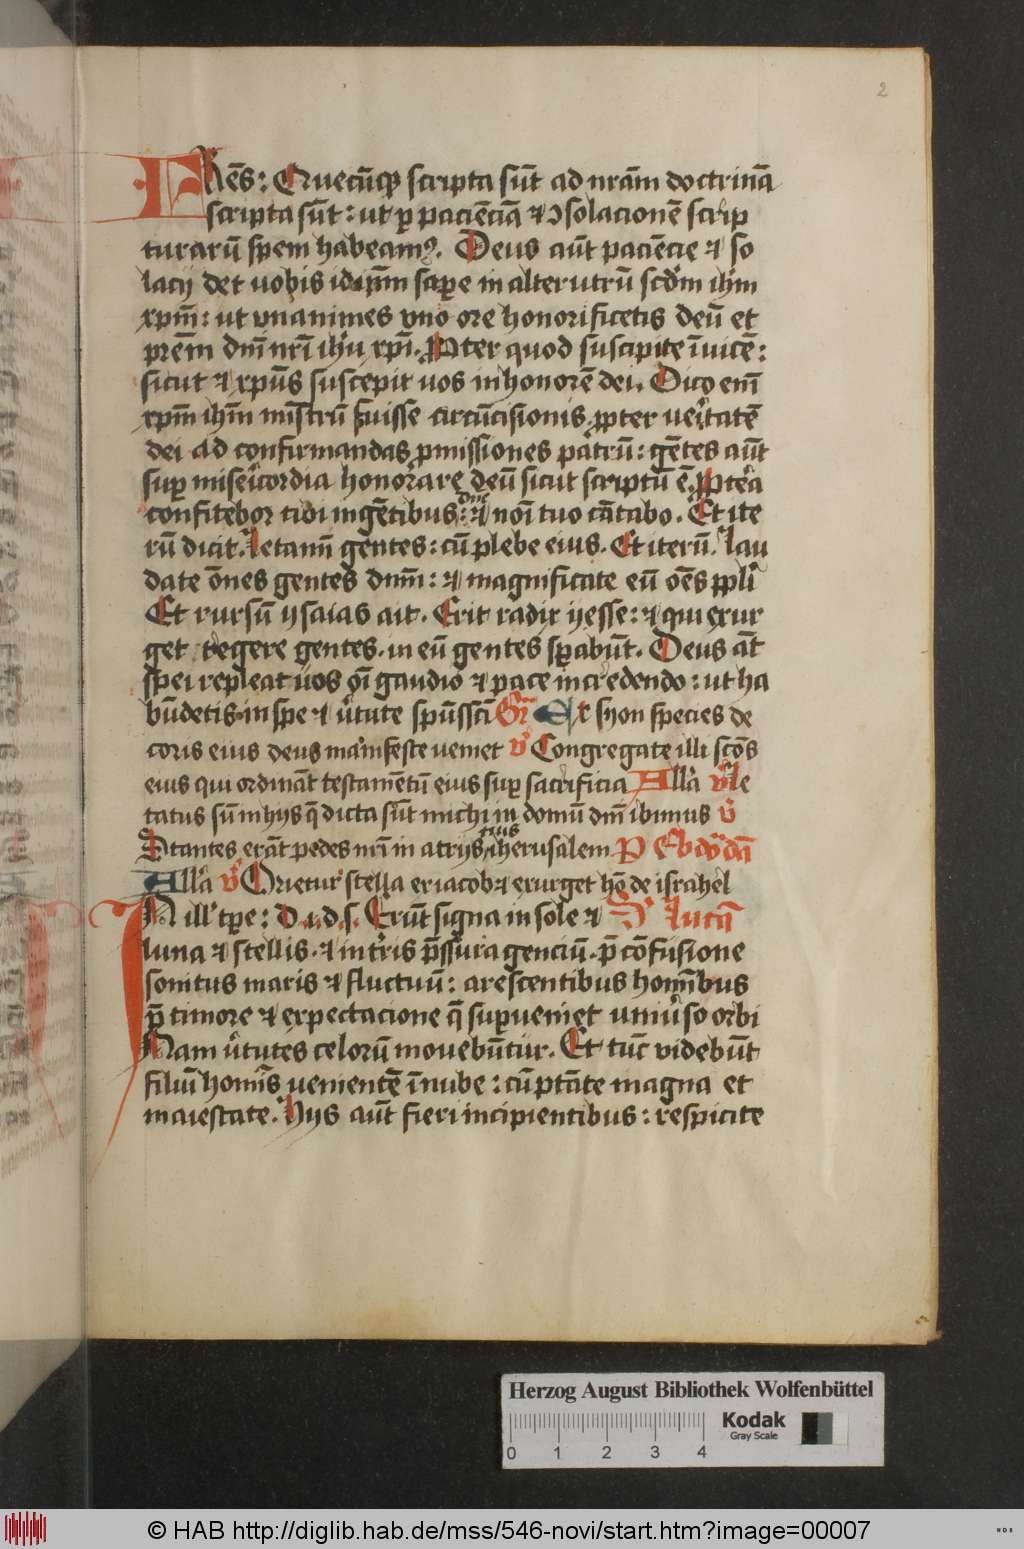 2
Frēs: Quecūq; scripta sūt ad nrām doctrinā
scripta sūt: ut p paciēciā ⁊ ɔsolacionē scrip
turarū spem habeamꝰ. Deus aūt paciēcie ⁊ so
lacij det vobis idipm̄ sape in alterutrū scdm̄ ihm̄
xpm̄: ut vnanimes vno ore honorificetis deū et
prēm dnī nrī ihū xpī. Pter quod suscipite īuicē:
sicut ⁊ xpūs suscepit uos in honorē dei. Dico enī
xpm̄ ihm̄ mīstrū fuisse circūcisionis ꝓpter ueritatē
dei ad confirmandas ꝓmissiones patrū: gētes aūt
sup misericordia honorare deū sicut scriptū ē. Ptea
confitebor tibi in gētibus dn̄e: ⁊ noī tuo cātabo. Et ite
rū dicit. Letamī gentes: cū plebe eius. Et iterū. Lau
date ōnes gentes dnm̄: ⁊ magnificate eū oēs ppli
Et rursū ysaias ait. Erit radix yesse: ⁊ qui exur
get regere gentes. in eū gentes spabūt. Deus āt
spei repleat uos oī gaudio ⁊ pace in credendo: ut ha
būdetis in spe ⁊ utute spūssctī Gr̄ Ex syon species de
coris eius deus manifeste veniet v̊ Congregate illi scōs
eius qui ordināt testamētū eius sup sacrificia Alla v̊ Le
tatus sū in hijs q̄ dicta sūt michi in domū dnī ibimus v̊
Stantes erāt pedes nrī in atrijs tuis iherusalem
Alla v̊ Orietur stella ex iacob ⁊ exurget hō de israhel
In ill' tpe: d. i. d. s. Erūt signa in sole ⁊ Lucā
luna ⁊ stellis. ⁊ in tris p̄ssura genciū. p̄ cōfusione
sonitus maris ⁊ fluctuū: arescentibus homībus
p̄ timore ⁊ expectacione q̄ supuenient uniuso orbi
Nam ututes celorū mouebūtur. Et tūc videbūt
filiū homīs venientē ī nube: cū ptāte magna et
maiestate. Hijs aūt fieri incipientibus: respicite
Herzog August Bibliothek Wolfenbüttel
0 1 2 3 4
Kodak
Gray Scale
© HAB http://diglib.hab.de/mss/546-novi/start.htm?image=00007